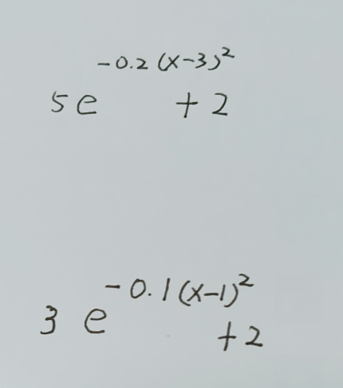 5e^{-0.2(x-3)^2} + 2
3e^{-0.1(x-1)^2} + 2